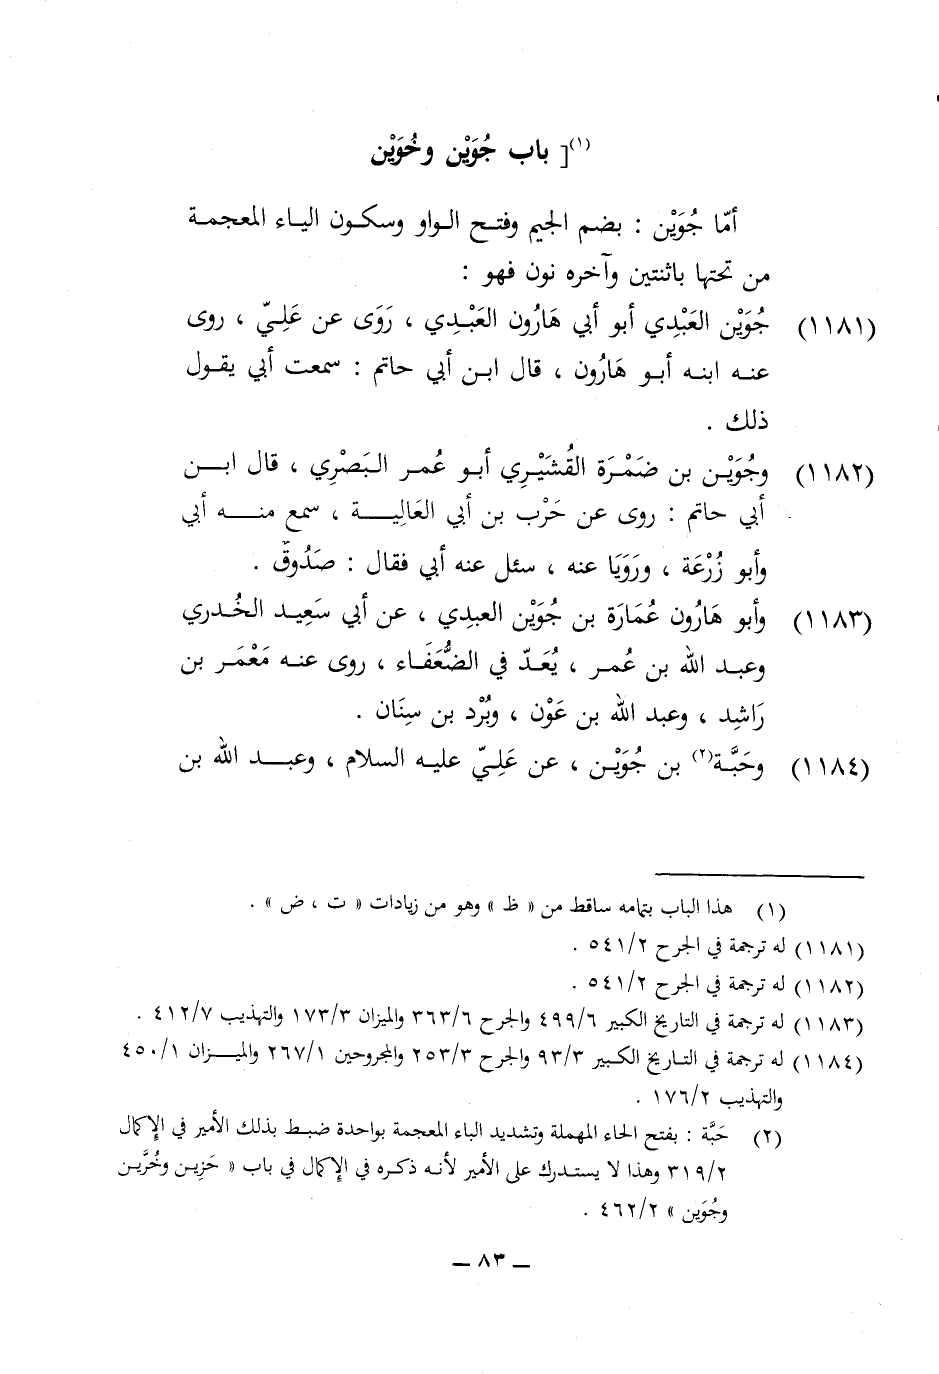 (١)[ باب جُوَيْن وخُوَيْن
أمّا جُوَيْن : بضم الجيم وفتح الواو وسكون الياء المعجمة
من تحتها باثنتين وآخره نون فهو :
(١١٨١) جُوَيْن العَبْدِي أبو أبي هَارُون العَبْدِي ، رَوَى عن عَلِيّ ، روى
عنه ابنه أبو هَارُون ، قال ابن أبي حاتم : سمعت أبي يقول
ذلك .
(١١٨٢) وجُوَيْن بن ضَمْرَة القُشَيْرِي أبو عُمر البَصْرِي ، قال ابن
أبي حاتم : روى عن حَرْب بن أبي العَالِية ، سمع منه أبي
وأبو زُرْعَة ، ورَوَيَا عنه ، سئل عنه أبي فقال : صَدُوقٌ .
(١١٨٣) وأبو هَارُون عُمَارَة بن جُوَيْن العبدي ، عن أبي سَعِيد الخُدري
وعبد الله بن عُمر ، يُعَدّ في الضُّعَفَاء ، روى عنه مَعْمَر بن
رَاشِد ، وعبد الله بن عَوْن ، وبُرْد بن سِنَان .
(١١٨٤) وحَبَّة(٢) بن جُوَيْن ، عن عَلِيّ عليه السلام ، وعبد الله بن
(١) هذا الباب بتمامه ساقط من « ظ » وهو من زيادات « ت ، ض » .
(١١٨١) له ترجمة في الجرح ٥٤١/٢ .
(١١٨٢) له ترجمة في الجرح ٥٤١/٢ .
(١١٨٣) له ترجمة في التاريخ الكبير ٤٩٩/٦ والجرح ٣٦٣/٦ والميزان ١٧٣/٣ والتهذيب ٤١٢/٧ .
(١١٨٤) له ترجمة في التاريخ الكبير ٩٣/٣ والجرح ٢٥٣/٣ والمجروحين ٢٦٧/١ والميزان ٤٥٠/١
والتهذيب ١٧٦/٢ .
(٢) حَبَّة : بفتح الحاء المهملة وتشديد الباء المعجمة بواحدة ضبط بذلك الأمير في الإكمال
٣١٩/٢ وهذا لا يستدرك على الأمير لأنه ذكره في الإكمال في باب « حَزِين وخُرَّين
وجُوَين » ٤٦٢/٢ .
– ٨٣ –